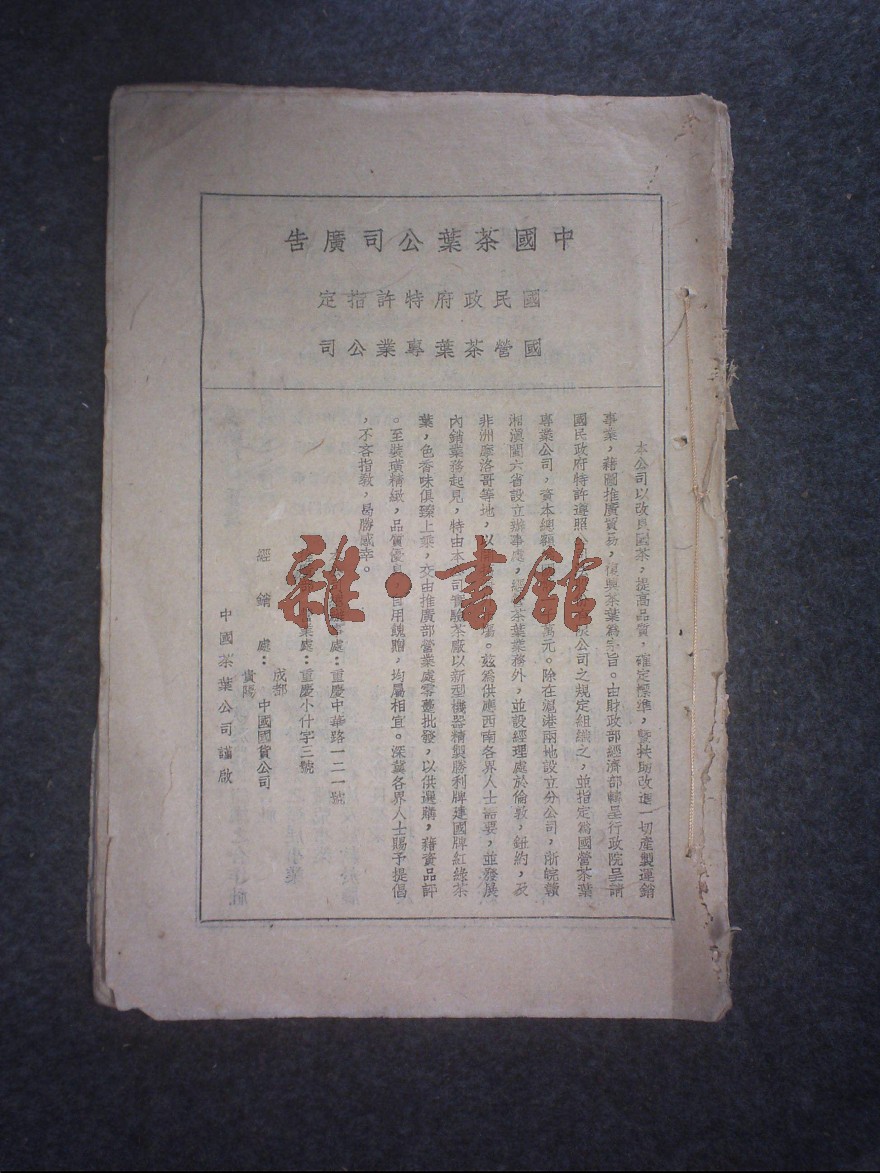 中國茶葉公司廣告
國民政府特許指定
國營茶葉專業公司
本公司以改良國茶，提高品質，確定標準，暨扶助改進一切產製運銷
事業，藉圖推廣貿易，復興茶葉為宗旨。由財政部經濟部轉呈行政院呈請
國民政府特許遵照 公司之規定組織之，並指定為國營茶葉
專業公司，資本總額 萬元。除在滬港兩地設立分公司，浙皖贛
湘滇閩六省設立辦事處，經營茶葉業務外，並設經理處於倫敦，紐約，及
非洲摩洛哥等地，以 。茲為供應西南各界人士需要，並發展
內銷業務起見，特由本公司實驗茶廠以新型機器精製勝利牌建國牌紅綠茶
葉，色香味俱臻上乘，交由推廣部營業處零躉批發，以供選購，藉資品評
。至裝璜精緻，品質優良，自用餽贈，均屬相宜。深冀各界人士賜予提倡
，不吝指教，曷勝感幸。
處：重慶中華路一二一號
業處：重慶小什字三號
經銷處：成都 貴陽 中國國貨公司
中國茶葉公司謹啟
雜·書館